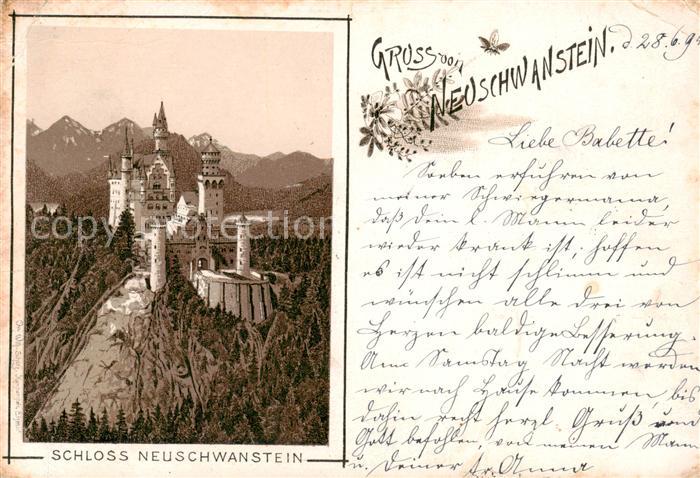 GRUSS von
NEUSCHWANSTEIN. d. 28.6.9
Liebe Babette!
Soeben erfuhren von
meiner Schwiegermama,
daß dein l. Mann leider
wieder krank ist, hoffen
es ist nicht schlimm und
wünschen alle drei von
Herzen baldige Besserung.
Am Samstag Nacht werden
wir nach Hause kommen, bis
dahin recht herzl Gruß, und
Gott befohlen von meinem Mann
u. Deiner tr. Anna
SCHLOSS NEUSCHWANSTEIN
copyright-watermark